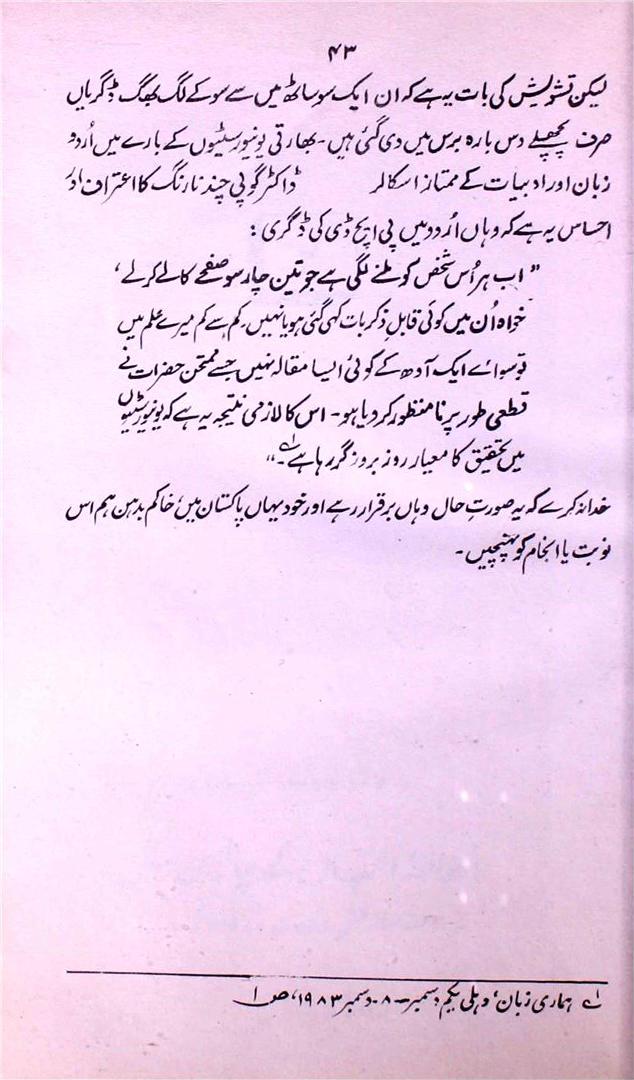 ۴۳
لیکن تشویش کی بات یہ ہے کہ ان ایک سو ساٹھ میں سے سو کے لگ بھگ ڈگریاں
صرف پچھلے دس بارہ برس میں دی گئی ہیں۔ بھارتی یونیورسٹیوں کے بارے میں اُردو
زبان اور ادبیات کے ممتاز اسکالر ڈاکٹر گوپی چند نارنگ کا اعتراف اور
احساس یہ ہے کہ وہاں اُردو میں پی ایچ ڈی کی ڈگری :
" اب ہر اُس شخص کو ملنے لگی ہے جو تین چار سو صفحے کالے کرلے ،
خواہ اُن میں کوئی قابلِ ذکر بات کہی گئی ہو یا نہیں۔ کم سے کم میرے علم میں
تو سوائے ایک آدھ کے کوئی ایسا مقالہ نہیں جسے ممتحن حضرات نے
قطعی طور پر نامنظور کر دیا ہو۔ اس کا لازمی نتیجہ یہ ہے کہ یونیورسٹیوں
میں تحقیق کا معیار روز بروز گر رہا ہے۔؎۱ "
خدا نہ کرے کہ یہ صورتِ حال وہاں برقرار رہے اور خود یہاں پاکستان میں، خاکم بدہن ہم اس
نوبت یا انجام کو پہنچیں۔
؎۱ ہماری زبان، دہلی یکم دسمبر - ۸ دسمبر ۱۹۸۳، ص ۱